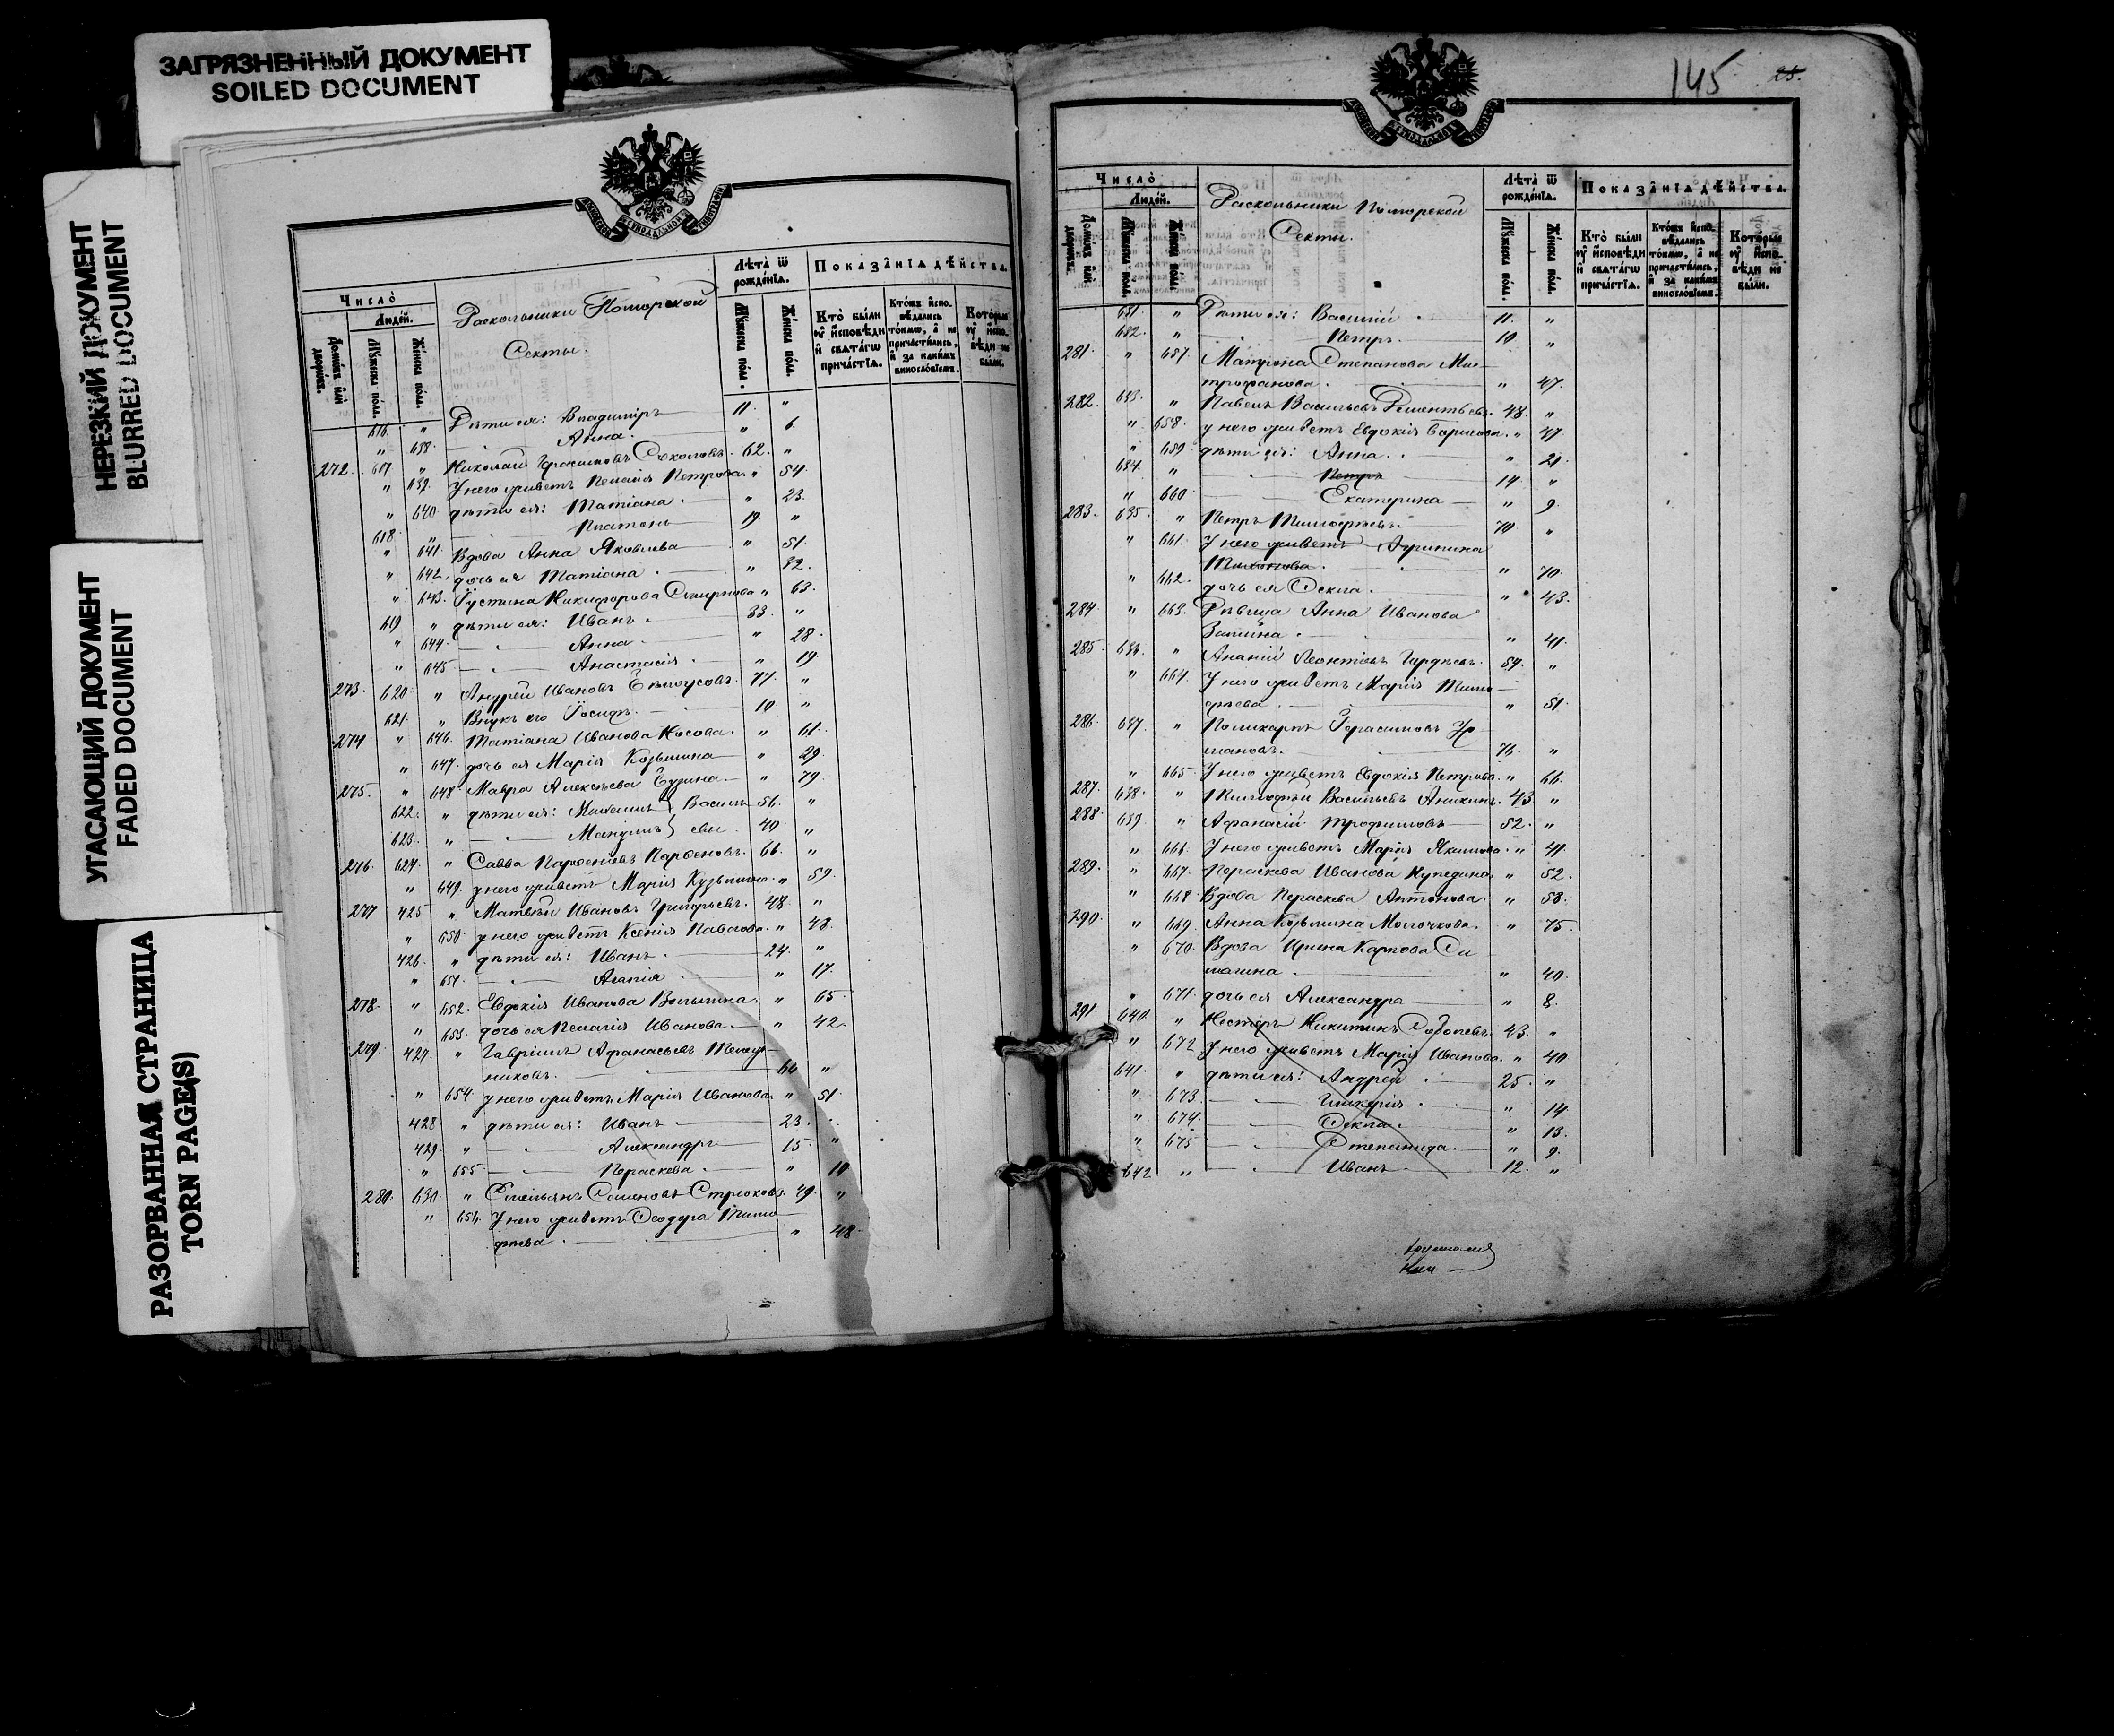 ЗАГРЯЗНЕННЫЙ ДОКУМЕНТ
SOILED DOCUMENT
НЕРЕЗКИЙ ДОКУМЕНТ
BLURRED DOCUMENT
УГАСАЮЩИЙ ДОКУМЕНТ
FADED DOCUMENT
РАЗОРВАННАЯ СТРАНИЦА
TORN PAGE(S)
Число
Людей.
Домовъ или дворовъ.
Мужеска пола.
Женска пола.
Раскольники Поморской
Секты.
Лѣта ѿ рожденїѧ.
Мужеска пола.
Женска пола.
Показанїѧ дѣйства.
Кто были оу исповѣди и свѧтагѡ причастїѧ.
Которые оу исповѣди не были.
616. " Дѣти ея: Владиміръ 11. "
" 638. Анна. " 6.
272. 617. " Николай Герасимовъ Соколовъ. 62. "
" 639. У него живетъ Пелагія Петрова. " 54
" 640. дѣти ея: Татіана. " 23.
618. " Платонъ 19. "
" 641. Вдова Анна Яковлева " 51.
" 642. дочь ея Татіана. " 32.
" 643. Іустина Никифорова Смирнова " 63.
619 " дѣти ея: Иванъ. 33. "
" 644. Анна. " 28.
" 645 Анастасія. " 19.
273. 620. " Андрей Ивановъ 77. "
621. " Внукъ его Іосифъ. 10 "
274 " 646. Татіана Иванова Косова. " 61.
" 647. дочь ея Марія Козьмина " 29.
275. " 648. Мавра Алексѣева " 79.
622. " дѣти ея: Михаилъ } Василь 56. "
623. " Мануилъ } евы. 40. "
276. 624. " Савва Парѳеновъ Парѳеновъ. 66. "
" 649. у него живетъ Марія Кузьмина. " 59.
277 425 " Матвѣй Ивановъ Григорьевъ. 48. "
" 650. у него живетъ Ксенія Павлова. " 43.
426. " дѣти ея: Иванъ. 24. "
" 651. Агапія " 17.
278. " 652. Евдокія Иванова " 65.
" 653. дочь ея Пелагія Иванова. " 42.
279. 427. " Гавріилъ Афанасьевъ
никовъ. 66 "
" 654. у него живетъ Марія Иванова. " 51.
428 " дѣти ея: Иванъ 23.
429. " Александръ 15. "
" 655 Параскева. " 10
280. 630. " Емельянъ Семеновъ 49. "
" 656. У него живетъ Ѳеодура Тимо
фѣева. " 48.
145
25.
Число
Людей.
Домовъ или дворовъ.
Мужеска пола.
Женска пола.
Раскольники Поморской
Секты.
Лѣта ѿ рожденїѧ.
Мужеска пола.
Женска пола.
Показанїѧ дѣйства.
Кто были оу исповѣди и свѧтагѡ причастїѧ.
Которые оу исповѣди не были.
631. " Дѣти ея: Василій. 11. "
632. " Петръ. 10 "
281. " 657. Матрона Степанова Ми-
трофанова. " 47.
282. 633. " Павелъ Васильевъ 48. "
" 658. у него живетъ Евдокія Борисова. " 47.
" 659. дѣти ея: Анна. " 21.
634. " Петръ 14. "
" 660 Екатерина " 9.
283. 635. " Петръ Тимофѣевъ. 70 "
" 661. У него живетъ
" 70.
" 662. дочь ея Ѳекла. " 43.
284. " 663. Дѣвица Анна Иванова
Зимина. " 41.
285. 636. " Ананій Леонтіевъ Гордѣевъ. 54. "
" 664. У него живетъ Марія Тимо-
фѣева. " 51.
286. 637. " Поликарпъ Герасимовъ
76. "
" 665. У него живетъ Евдокія Петрова. " 66.
287. 638. " Тимофей Васильевъ Аникинъ. 43. "
288. 639. " Афанасій Трофимовъ 52. "
" 666. У него живетъ Марія Якимова. " 41.
289. " 667. Параскева Иванова " 52.
" 668. Вдова Параскева Антонова. " 53.
290. " 669. Анна Козьмина Молочкова. " 75.
" 670. Вдова Ирина Карпова Си
" 40.
" 671. дочь ея Александра " 8.
291. 640. " Несторъ Никитинъ Соболевъ. 43. "
" 672. У него живетъ Марія Иванова. " 40
641. " дѣти ея: Андрей 25. "
" 673. Гликерія. " 14.
" 674. Ѳекла. " 13.
" 675 Степанида. " 9.
642 " Иванъ 12. "